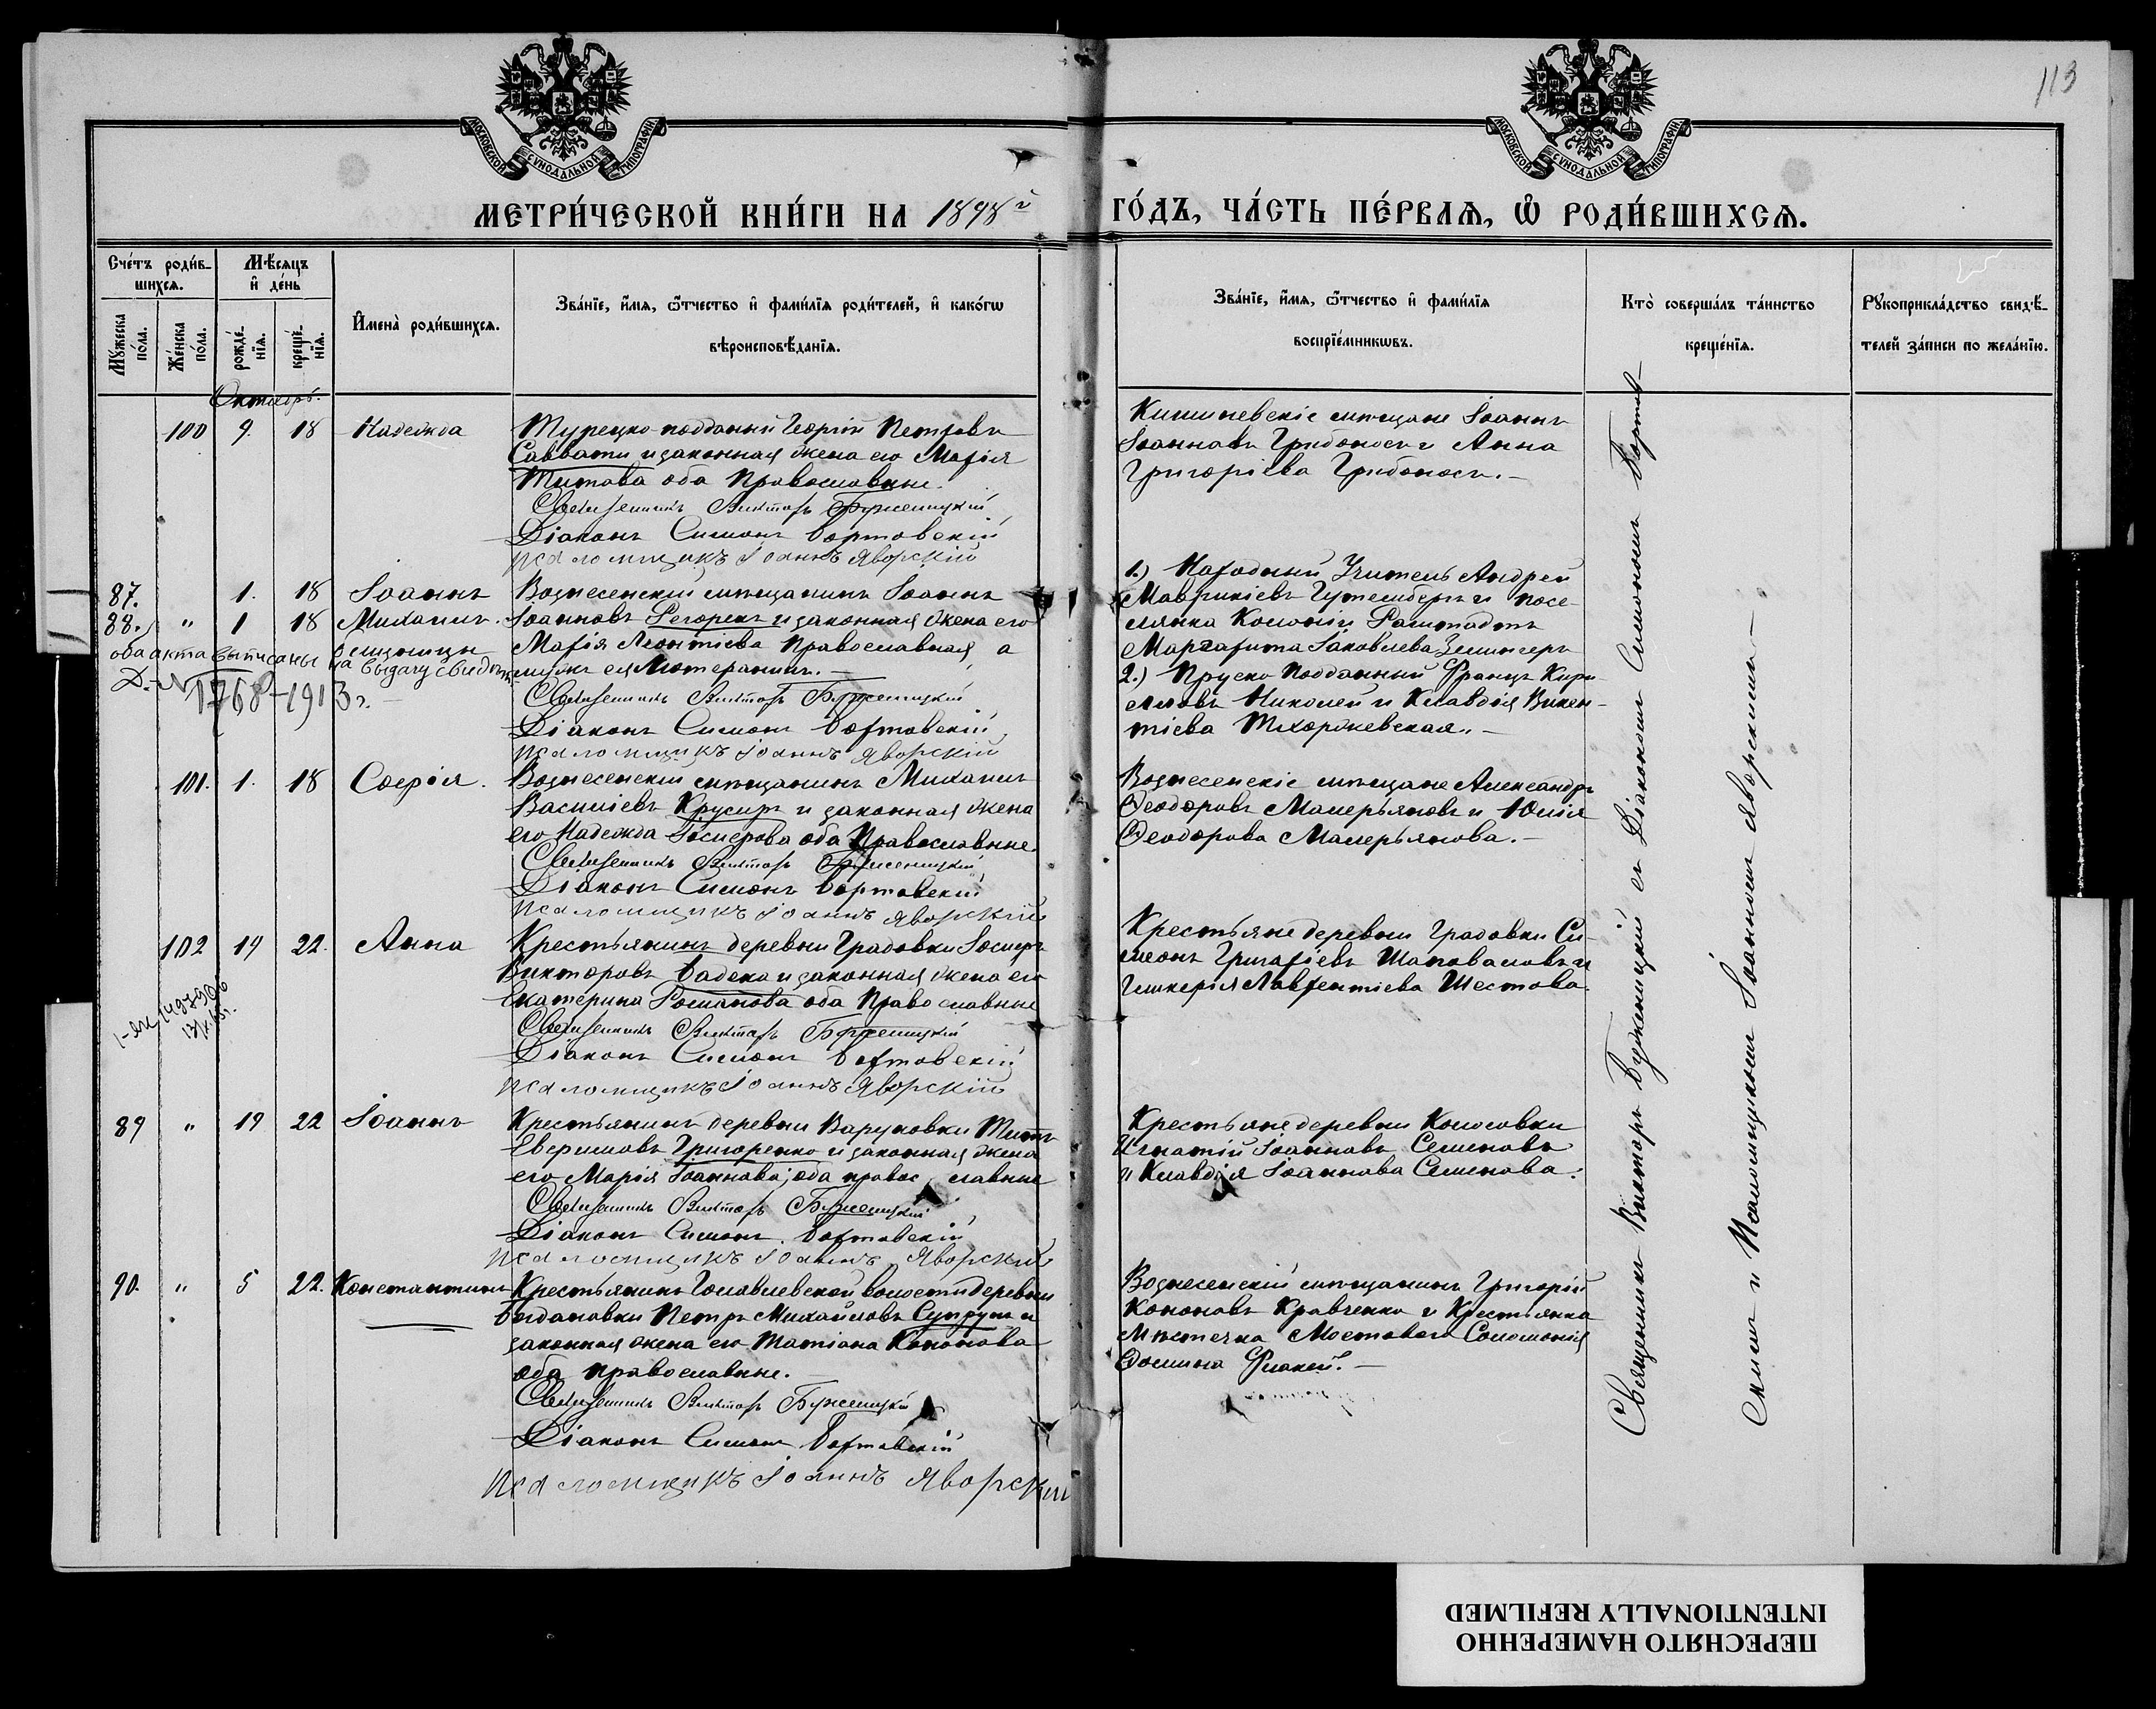 113
МОСКОВСКОЙ СѴНОДАЛЬНОЙ ТИПОГРАФІИ
МОСКОВСКОЙ СѴНОДАЛЬНОЙ ТИПОГРАФІИ
МЕТРИ́ЧЕСКОЙ КНИ́ГИ НА 1898й ГО́ДЪ, ЧА́СТЬ ПЕ́РВАѦ, Ѡ҆ РОДИ́ВШИХСѦ.
Сче́тъ роди́в-
шихсѧ.
Мѣ́сѧцъ
и҆ де́нь
Мꙋ́жеска
по́ла.
Же́нска
по́ла.
рожде́-
нїѧ.
креще́-
нїѧ.
И҆мена̀ роди́вшихсѧ.
Зва́нїе, и҆́мѧ, ѻ҆́тчество и҆ фами́лїѧ роди́телей, и҆ како́гѡ
вѣроисповѣ́данїѧ.
Зва́нїе, и҆́мѧ, ѻ҆́тчество и҆ фами́лїѧ
воспрїе́мникѡвъ.
Кто̀ соверша́лъ та́инство
креще́нїѧ.
Рꙋкоприкла́дство свидѣ́-
телей за́писи по жела́нїю.
Октябрь.
100 9. 18 Надежда
Турецко-подданный Георгій Петровъ
Саввати и законная жена его Марія
Титова оба Православные.
Священникъ Викторъ Буженицкій
Діаконъ Симонъ Бортовскій
Псаломщикъ Іоаннъ Яворскій
Кишиневскіе мѣщане Іоаннъ
Іоанновъ Грибоносъ и Анна
Григоріева Грибоносъ.–
87. 1. 18 Іоаннъ
88. " 1 18 Михаилъ.
близнецы
оба акта выписаны на выдачу свидѣт.
1768-1913 г.
Вознесенскій мѣщанинъ Іоаннъ
Іоанновъ Регорекъ и законная жена его
Марія Леонтіева Православная, а
мужъ ея Лютеранинъ.–
Священникъ Викторъ Буженицкій
Діаконъ Симонъ Бортовскій
Псаломщикъ Іоаннъ Яворскій
1.) Народный Учитель Андрей
Маврикіевъ Гутенбергъ и посе-
лянка Колоніи Раштадтъ
Маргарита Іаковлева
2.) Пруско Подданный Францъ Кири-
лловъ Николей и Клавдія Викен-
тіева Тхоржевская.–
101. 1. 18 Софія.
Вознесенскій мѣщанинъ Михаилъ
Василіевъ Крусиръ и законная жена
его Надежда Іосифова оба Православные.
Священникъ Викторъ Буженицкій
Діаконъ Симонъ Бортовскій
Псаломщикъ Іоаннъ Яворскій
Вознесенскіе мѣщане Александръ
Ѳеодоровъ Мамерьяновъ и Юлія
Ѳеодорова Мамерьянова.–
102 14 22. Анна
Крестьянинъ деревни Градовки Іосифъ
Викторовъ Бадека и законная жена его
Екатерина Романова оба Православные
Священникъ Викторъ Буженицкій
Діаконъ Симонъ Бортовскій
Псаломщикъ Іоаннъ Яворскій
Крестьяне деревни Градовки Си-
меонъ Григоріевъ Шаповаловъ и
Гликерія Лаврентіева Шестова.
89 " 19 22 Іоаннъ
Крестьянинъ деревни Варуновки Титъ
Евфимовъ Григоренко и законная жена
его Марія Іоаннова, оба православные
Священникъ Викторъ Буженицкій
Діаконъ Симонъ Бортовскій
Псаломщикъ Іоаннъ Яворскій
Крестьяне деревни Колосовки
Игнатій Іоанновъ Семеновъ
и Клавдія Іоаннова Семенова.
90. " 5 22. Константинъ
Крестьянинъ волости деревни
Богдановки Петръ Михайловъ Супрунъ и
законная жена его Татіана Кононова
оба православные.
Священникъ Викторъ Буженицкій
Діаконъ Симонъ Бортовскій
Псаломщикъ Іоаннъ Яворскій
Вознесенскій мѣщанинъ Григорій
Кононовъ Кравченко и Крестьянка
Мѣстечка Мостового Соломонія
Фомина
Священникъ Викторъ Буженицкій съ Діакономъ Симономъ Бортов-
скимъ и Псаломщикомъ Іоанномъ Яворскимъ.–
ПЕРЕСНЯТО НАМЕРЕННО
INTENTIONALLY REFILMED